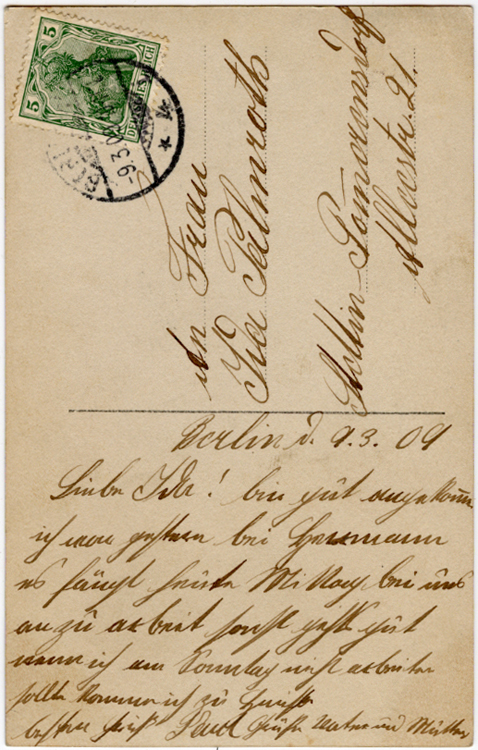 5
5
DEUTSCHES REICH
BERLIN
-9.3.09
An Frau
Ida Palmroth
Stettin-Pomerensdorf
Alleestr. 21.
Berlin d. 9.3.09
Liebe Ida! bin gut angekomm
ich war gestern bei Hermann
es fängt heute Mittag bei uns
an zu arbeit sonst geht gut
wenn ich am Sonntag nicht arbeiten
sollte komme ich zu
besten Gruß Paul Grüße Vater und Mutter